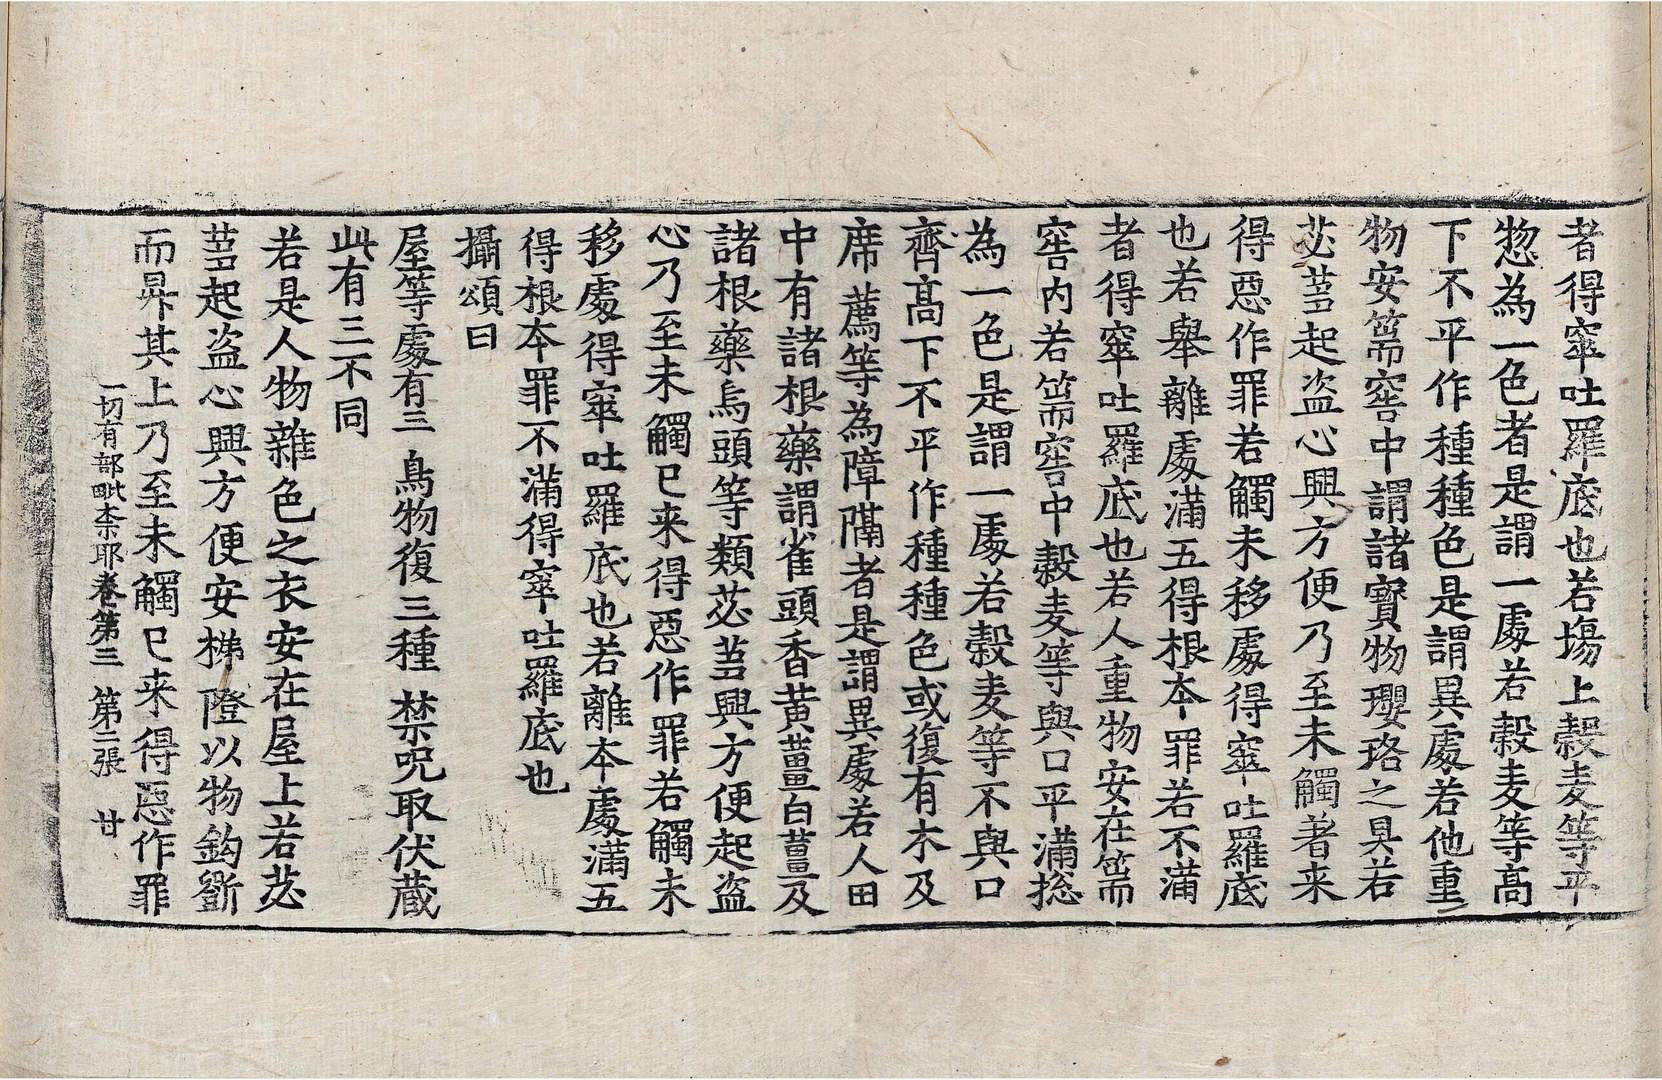 者得窣吐羅底也若塲上穀麦等平
惣為一色者是謂一處若穀麦等高
下不平作種種色是謂異處若他重
物安篅窖中謂諸寳物瓔珞之具若
苾蒭起盗心興方便乃至未觸著来
得惡作罪若觸未移處得窣吐羅底
也若舉離處滿五得根本罪若不滿
者得窣吐羅底也若人重物安在篅
窖内若篅窖中穀麦等與口平滿捴
為一色是謂一處若穀麦等不與口
齊髙下不平作種種色或復有木及
席薦等為障隔者是謂異處若人田
中有諸根藥謂雀頭香黄薑白薑及
諸根藥烏頭等類苾蒭興方便起盗
心乃至未觸已来得惡作罪若觸未
移處得窣吐羅底也若離本處滿五
得根本罪不滿得窣吐羅底也
攝頌曰
屋等處有三 鳥物復三種 禁呪取伏蔵
此有三不同
若是人物雜色之衣安在屋上若苾
蒭起盗心興方便安梯隥以物鈎斵
而昇其上乃至未觸已来得惡作罪
一切有部毗柰耶卷第三 第二張 甘